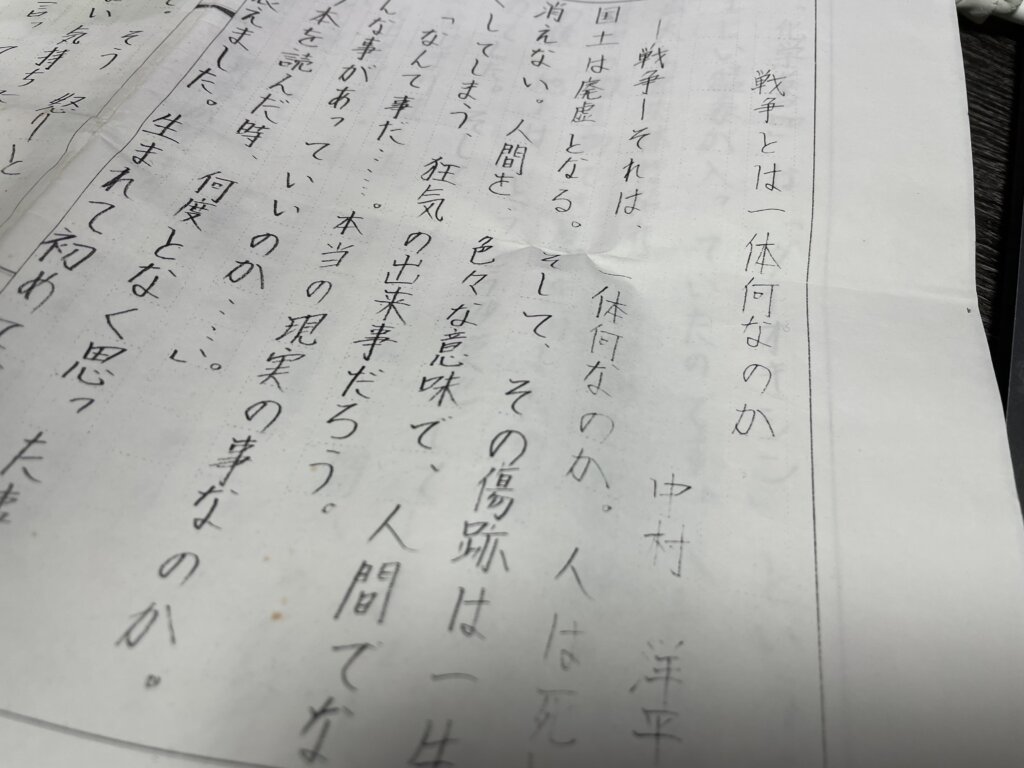 戦争とは一体何なのか
中村 洋平
ー戦争ーそれは、一体何なのか。人は死
国土は廃虚となる。そして、その傷跡は一生
消えない。人間を、色々な意味で、人間でな
くしてしまう、狂気の出来事だろう。
「なんて事だ……。本当の現実の事なのか。
んな事があっていいのか……」。
本を読んだ時、何度となく思った
えました。生まれて初めて
そう 怒りと
い気持ち